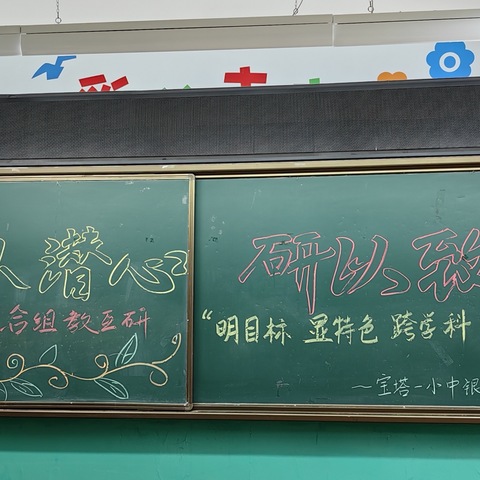 潜心
合组教互研
研以致
“明目标 显特色 跨学科
~宝塔一小中银